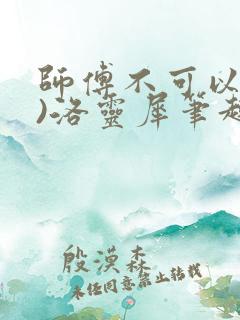 師傅不可以
)洛靈犀筆趣
殷漠森
未经同意禁止转载